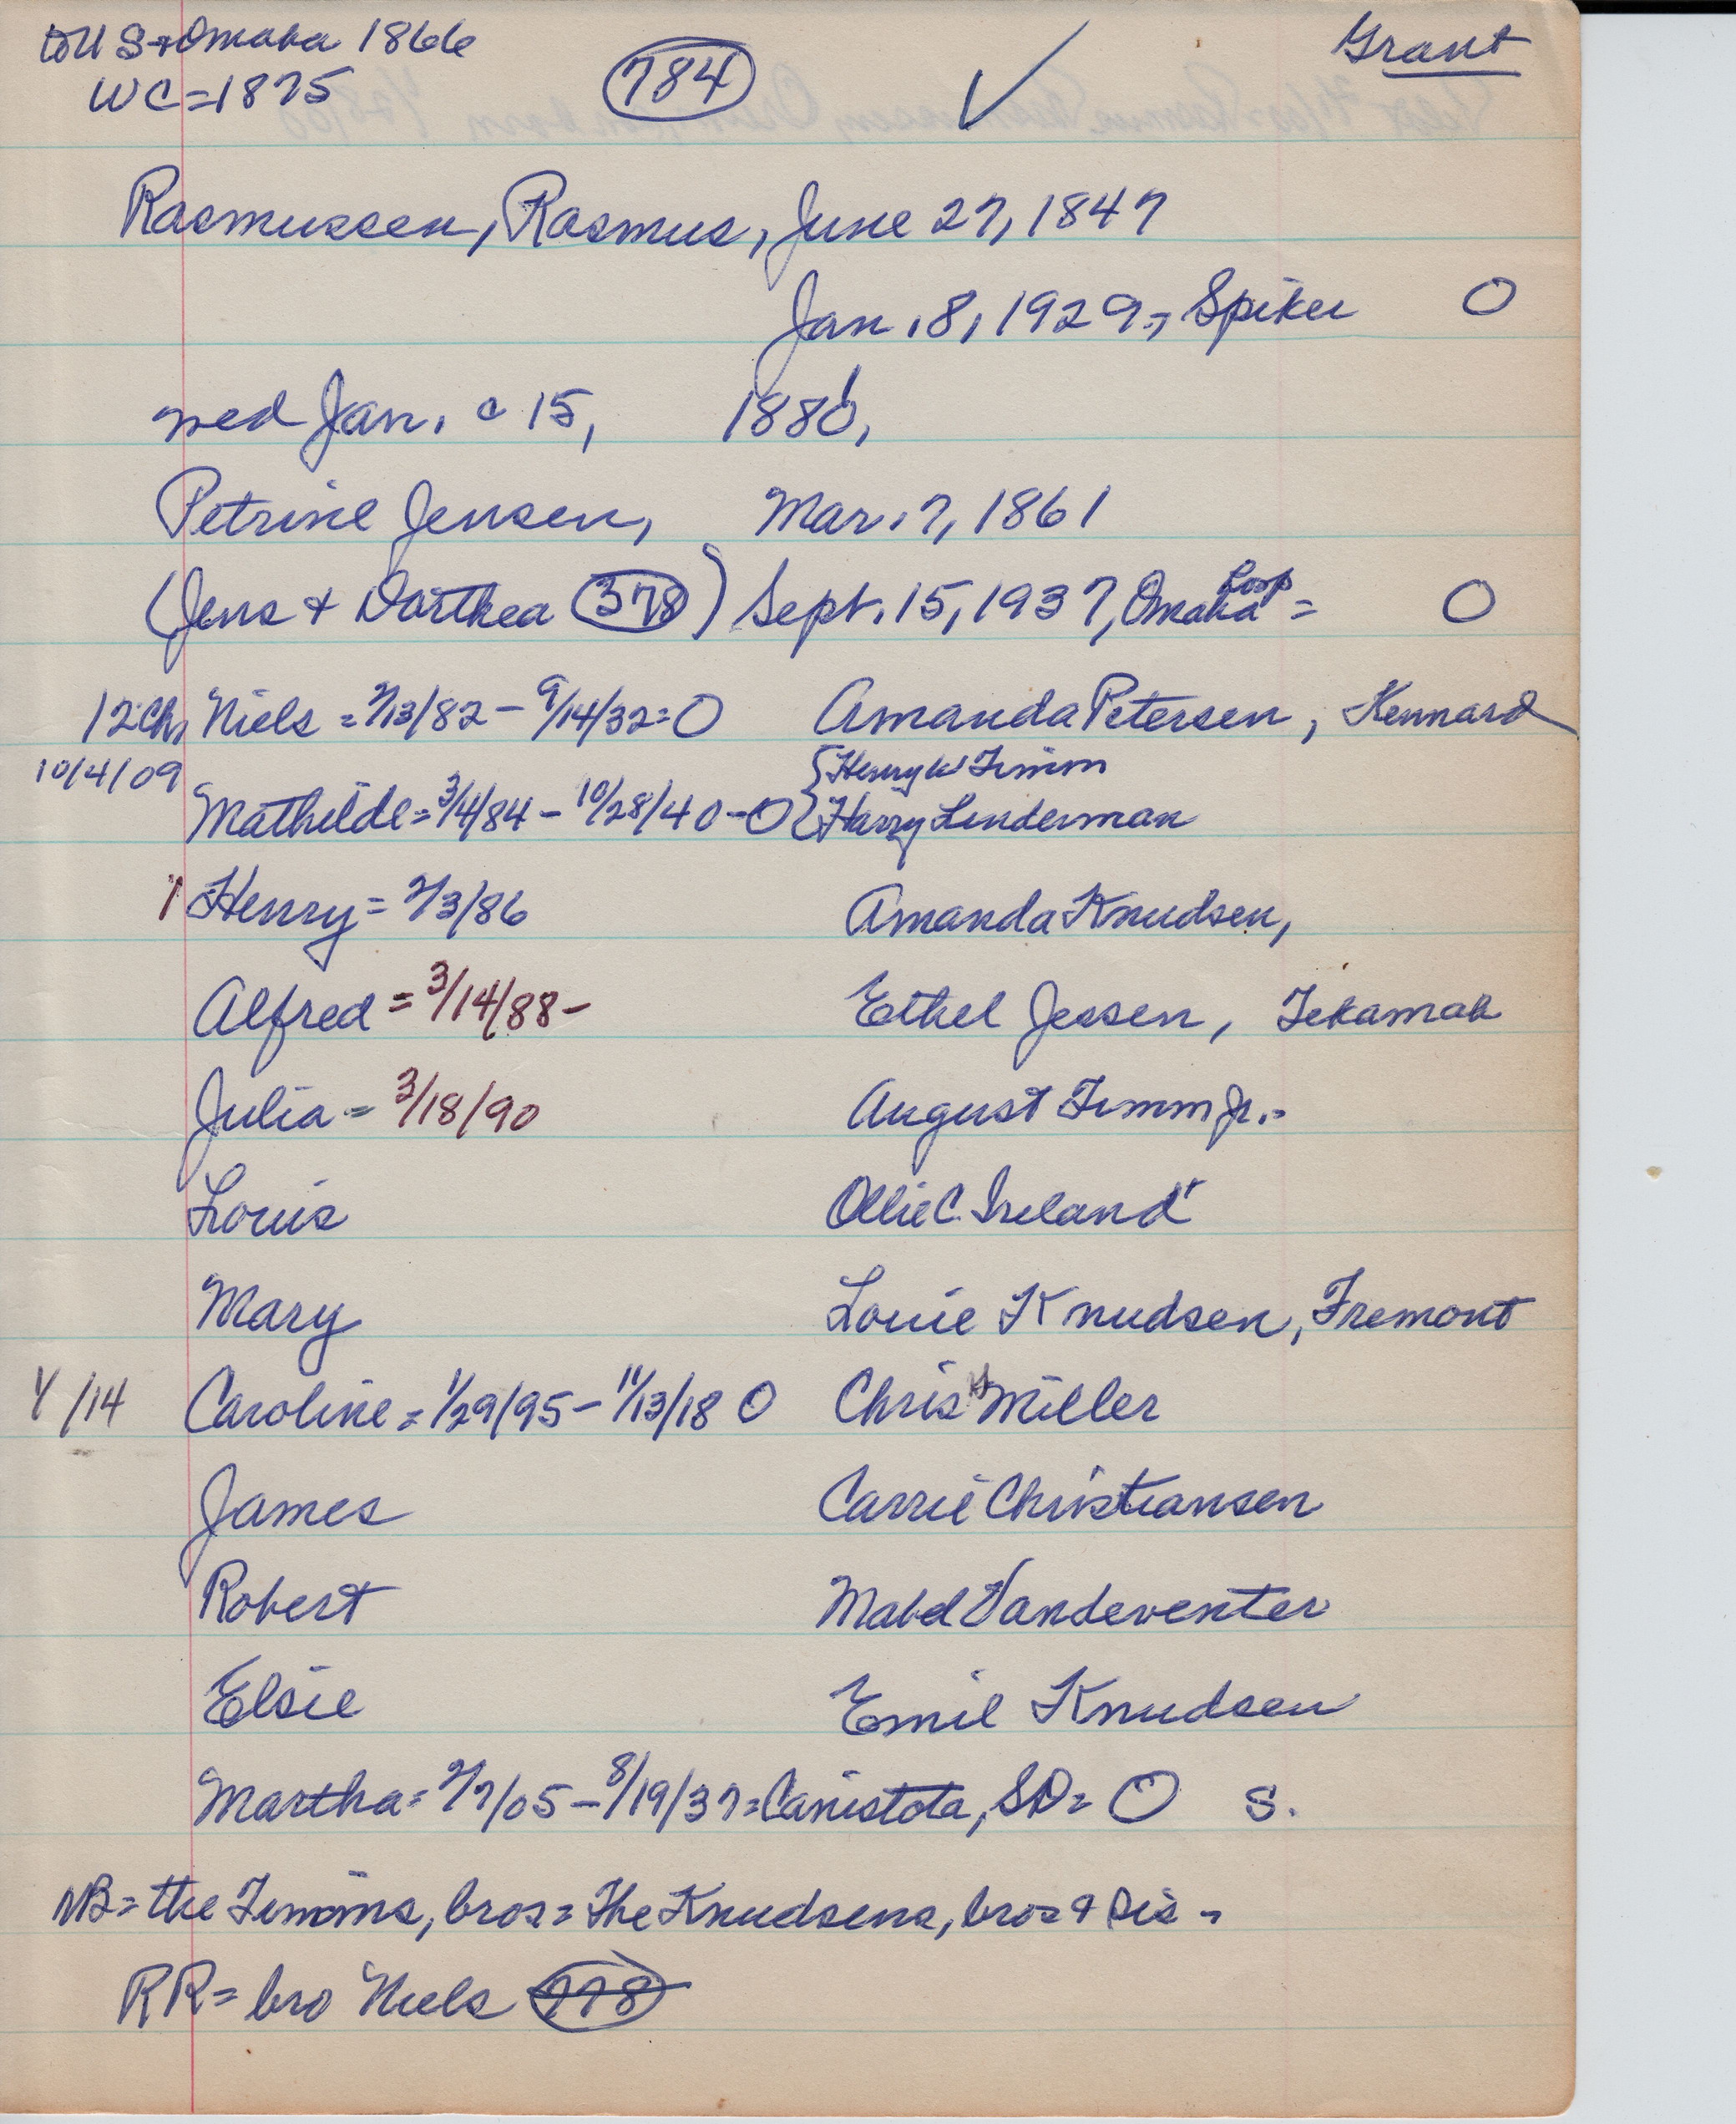 to U S + Omaha 1866
Grant
WC=1875
784
Rasmussen, Rasmus, June 27, 1847
Jan. 8, 1929., Spiker O
med Jan. c 15, 1880,
Petrine Jensen, Mar. 7, 1861
(Jens + Darthea 378) Sept. 15, 1937, Omaha Hosp = O
12 Ch, Niels = 2/13/82 – 9/14/32=O Amanda Petersen, Kennard
10/4/09 { Henry W Timm
Mathilde = 3/4/84 – 10/28/40 – O { Harry Linderman
Henry = 2/3/86 Amanda Knudsen,
Alfred = 3/14/88 – Ethel Jessen, Tekamah
Julia = 3/18/90 August Timm Jr. =
Louis Ollie C. Ireland
Mary Louie Knudsen, Fremont
/14 Caroline = 1/29/95 – 11/13/18 O Chris H Miller
James Carrie Christiansen
Robert Mabel Vandeventer
Elsie Emil Knudsen
Martha = 2/7/05 – 8/19/37 = Canistota, SD = O S.
NB = the Timms, bros = The Knudsens, bros & sis –
RR = bro Niels 778